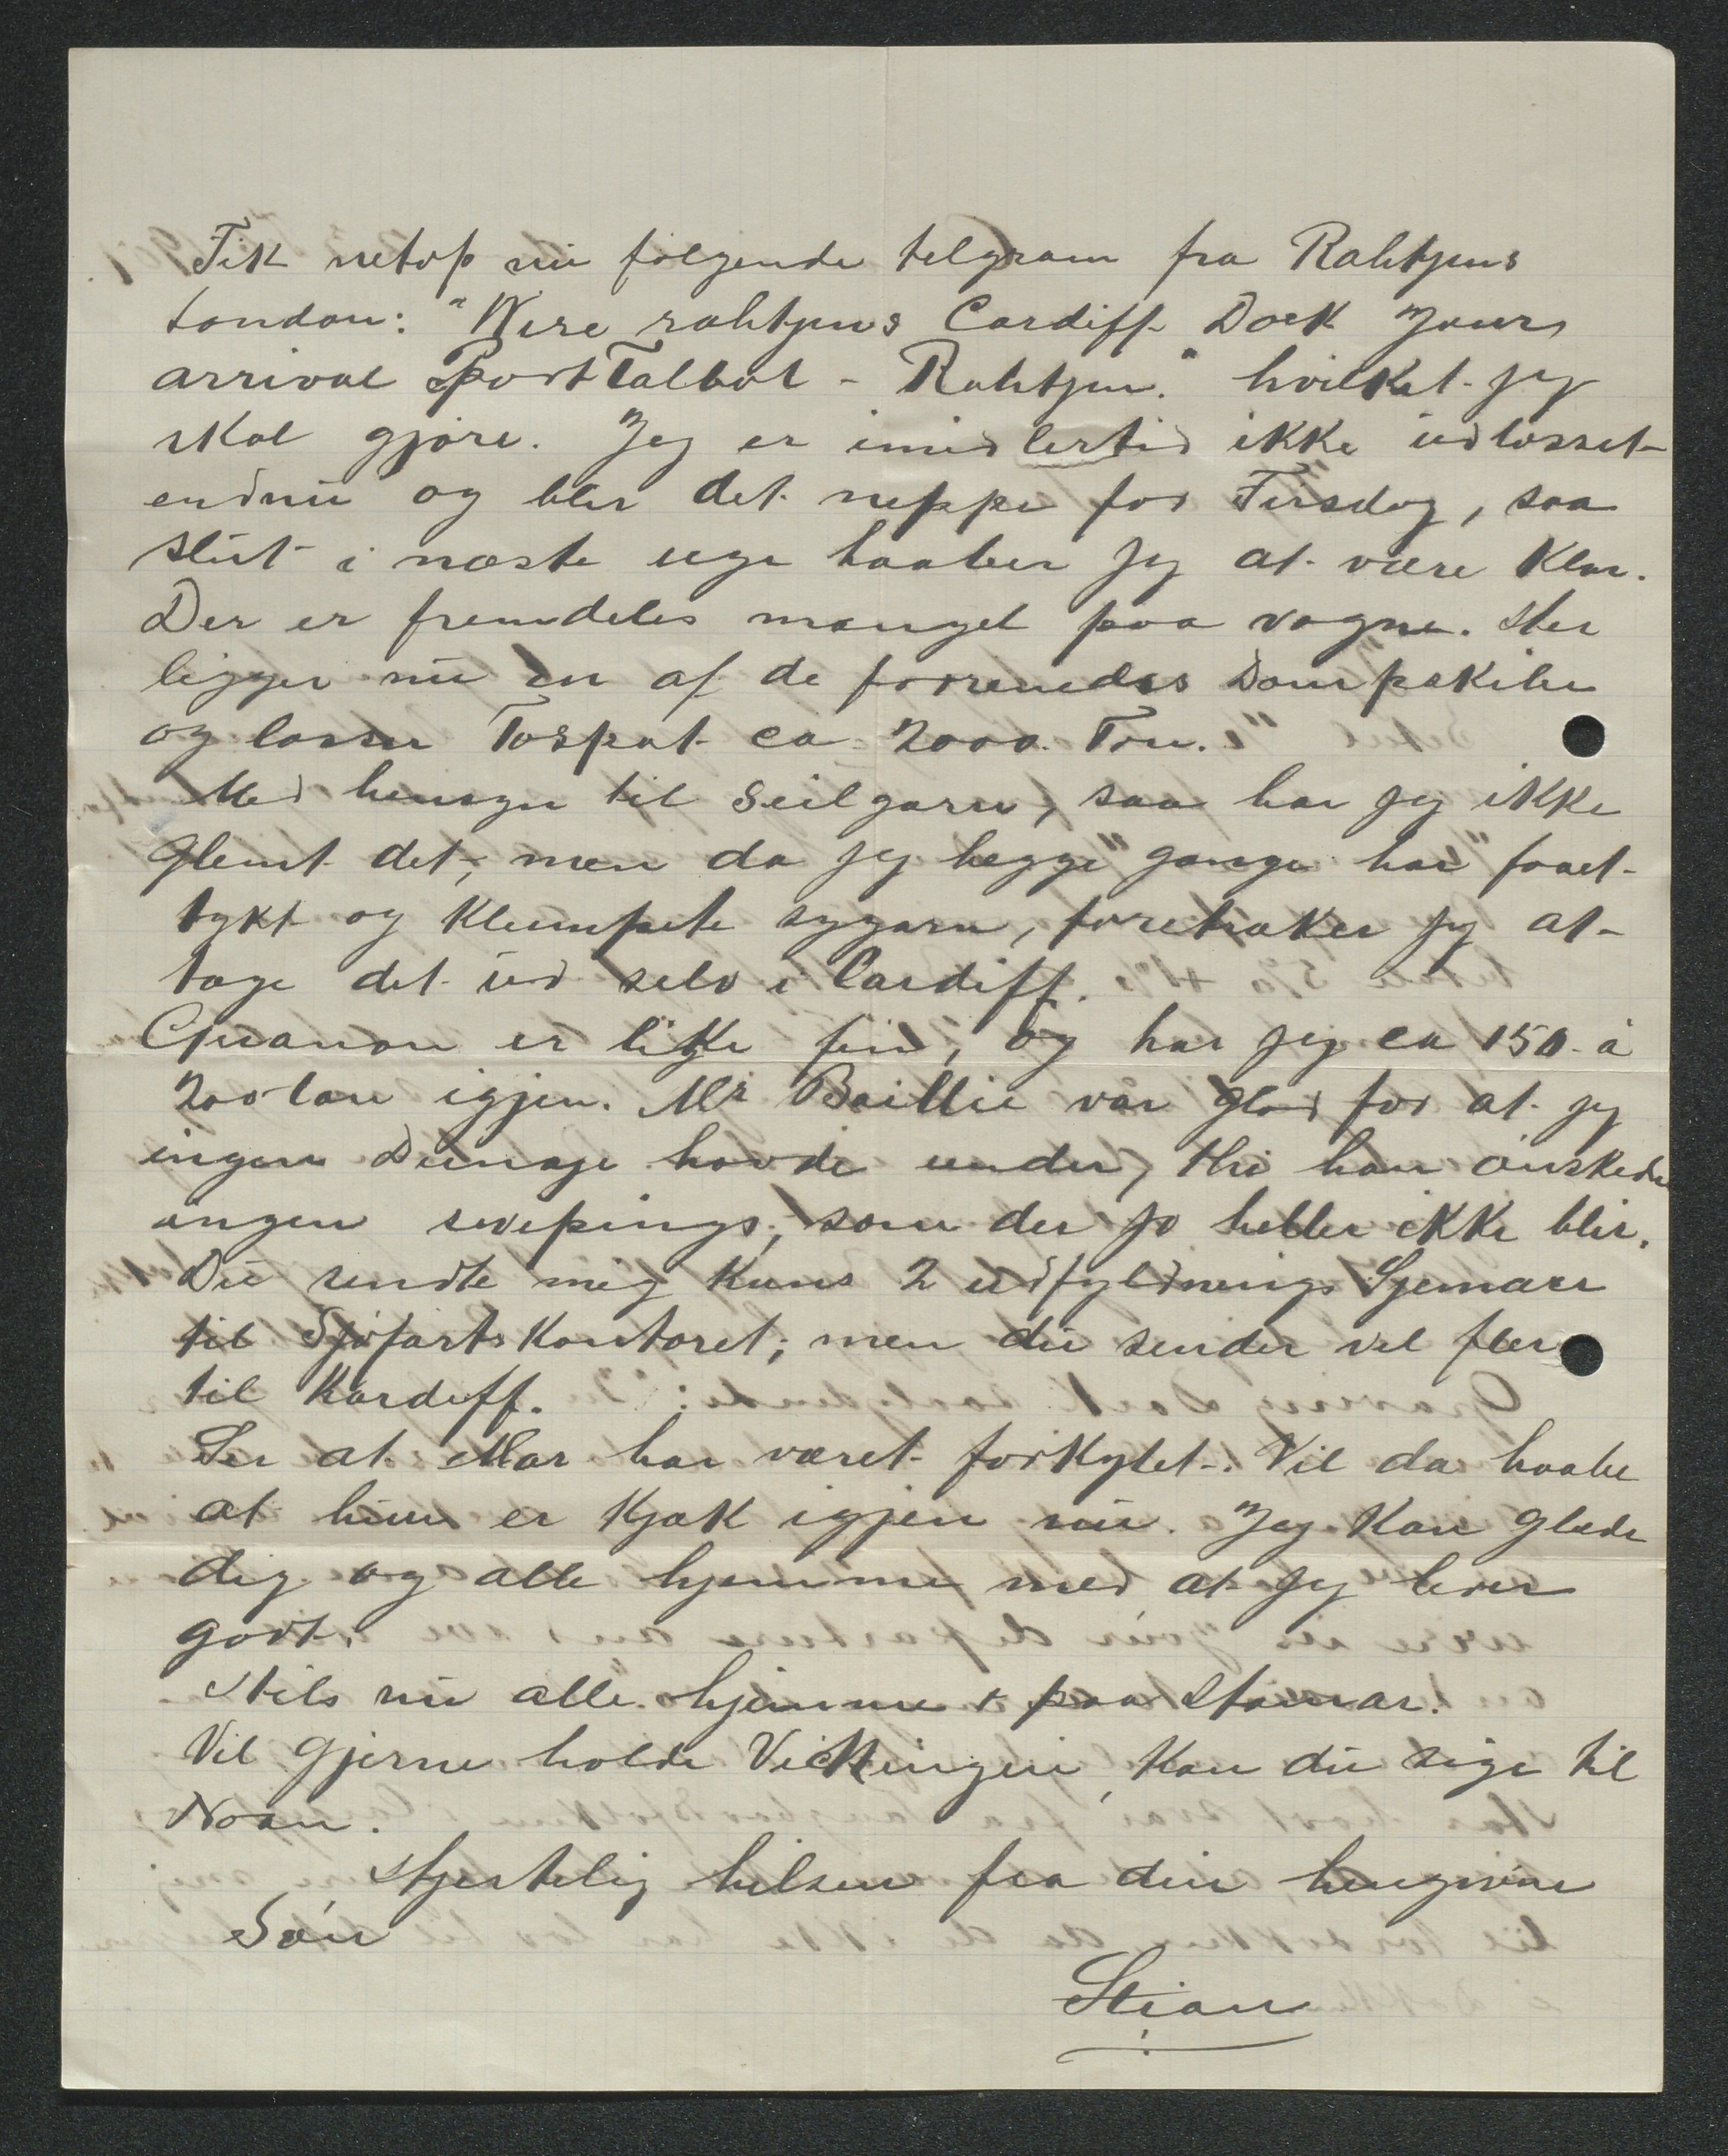 Fik netop nu følgende telgram fra Rahtjens
London: "Wire rahtjens Cardiff Dock Yours
arrival Port Talbot - Rahtjen." hvilket jeg
skal gjøre. Jeg er imidlertid ikke udlosset
endnu og blir det neppe før Tirsdag, saa
slut i næste uge haaber jeg at være klar.
Der er fremdeles mangel paa vogne. Her
ligger nu en af de forrenedes Dampskibe
og losser Fospat ca 2000. Ton.
Med hensyn til Seilgarn, saa har jeg ikke
Glemt det, men da jeg begge gange har faaet
tykt og klumpete sygarn, foretræker jeg at
tage det ud selv i Cardiff.
Guanoen er like fin, og har jeg ca 150 à
200 ton igjen. Mr Baillie var glad for at jeg
ingen Dunage havde under, thi han ønskede
ingen svepings, som der jo heller ikke blir.
Du sendte mig kuns 2 udfyldnings Sjemaer
til Sjøfartskontoret; men du sender vel fler
til Kardiff.
Ser at Mor har været forkjølet. Vil da haabe
at hun er kjæk igjen nu. Jeg kan glæde
dig og alle hjemme med at jeg lever
godt.
Hils nu alle hjemme & paa
Vil gjerne holde Vickingen, kan du sige til
Hjertelig hilsen fra din hengivne
Søn
Stian